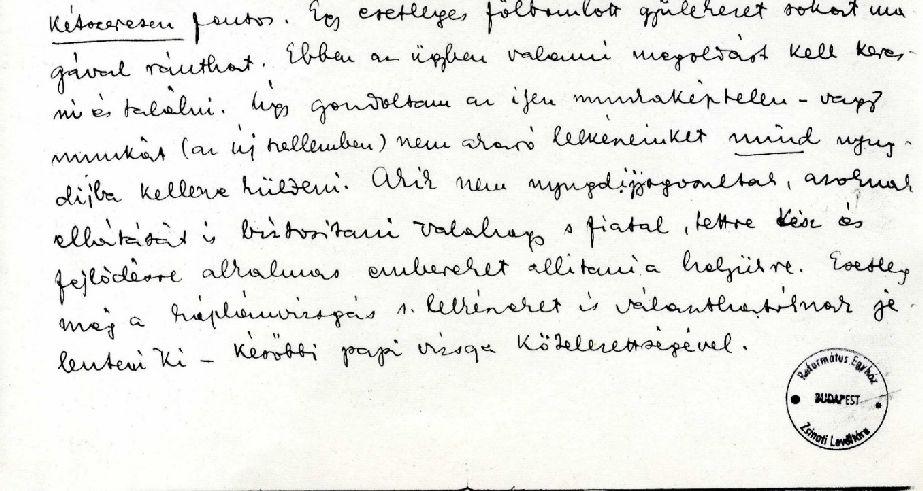 kétszeresen fontos. Egy esetleges fölbomlott gyülekezet sokat ma-
gával ránthat. Ebben az ügyben valami megoldást kell keres-
ni és találni. Úgy gondoltam az ilyen munkaképtelen - vagy
munkát (az új szellemben) nem akaró lelkészeinket mind nyug-
dijba kellene küldeni. Akik nem nyugdíjjogosultak, azoknak
ellátását is biztosítani valahogy s fiatal, tettre kész és
fejlődésre alkalmas embereket állítani a helyükre. Esetleg
még a káplánvizsgás s. lelkészeket is választhatóknak je-
lenteni ki - későbbi papi vizsga kötelezettségével.
Református Egyház
BUDAPEST
Zsinati Levéltára